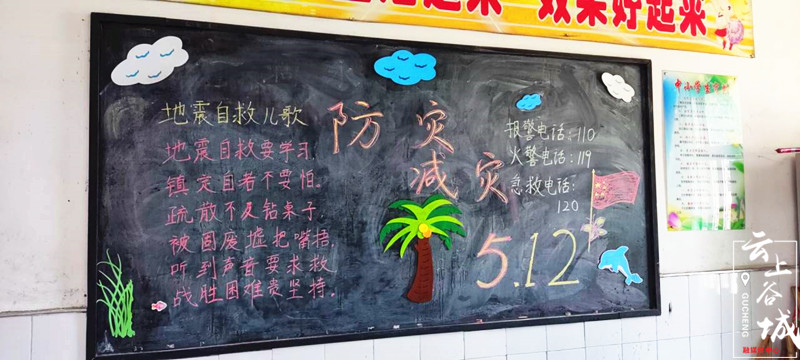 效果好起来
地震自救儿歌
地震自救要学习,
镇定自若不要怕。
疏散不及钻桌子,
被困废墟把嘴捂,
听到声音要求救
战胜困难贵坚持。
防灾
减灾
5.12
报警电话:110
火警电话:119
急救电话:
120
中小学生守则
云上谷城
GUCHENG